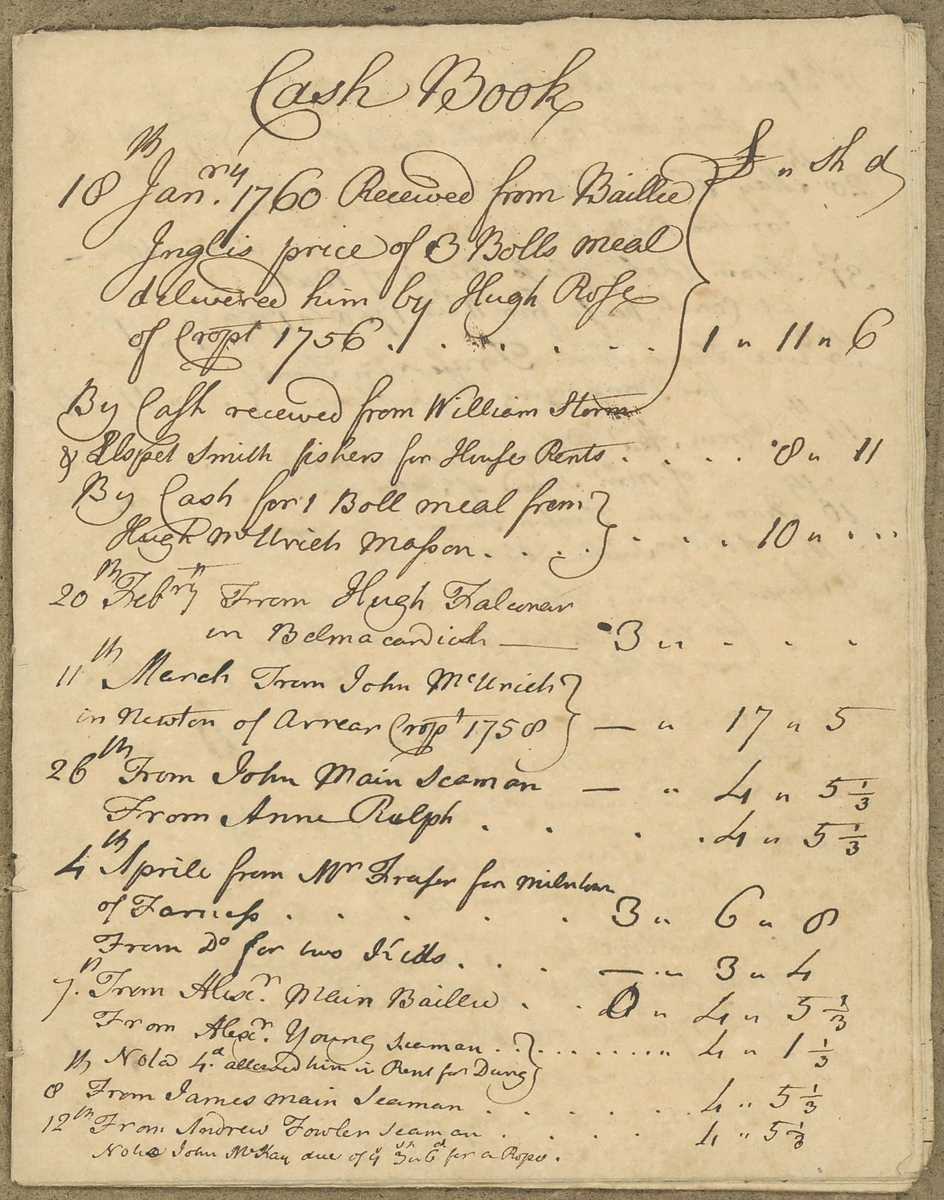 Cash Book
£ " sh d
18th Janry. 1760 Received from Baillie
Inglis price of 3 Bolls meal
delivered him by Hugh Rose
of Cropt 1756 . . . . . . 1 " 11 " 6
By Cash received from William Storm
& Elspet Smith fishers for House Rents . . . . 8 " 11
By Cash for 1 Boll meal from
Hugh McUrich Masson . . . . . . . . 10 " ...
20th Febry From Hugh Falconar
in Belmacardich — 3 " . . .
11th March From John McUrich
in Newton of Arrear Cropt 1758 — " 17 " 5
26th From John Main Seaman — " 4 " 5 1/3
From Anne Ralph . . . . 4 " 5 1/3
4th Aprile from Mr Fraser for milntown
of Farness . . . . . 3 " 6 " 8
From Do for two Kids . . . — " 3 " 4
7th From Alexr. Main Baillie . . 0 " 4 " 5 1/3
From Alexr. Young Seaman . . . . . . . . . 4 " 1 1/3
Nota 4d. allowed him in Rent for Dung
8th From James main Seaman . . . . . . 4 " 5 1/3
12th From Andrew Fowler Seaman . . . . 4 " 5 1/3
Nota John McKay due of 3sh " 6d for a Rope.